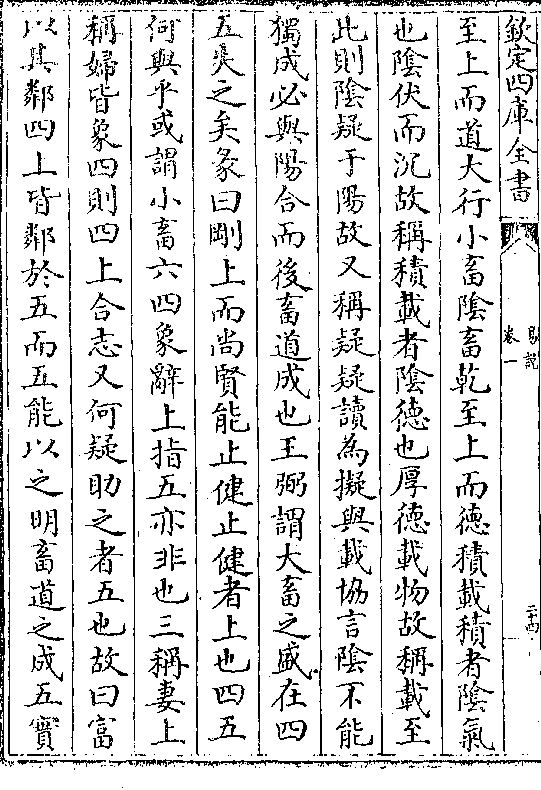 欽定四庫全書
易說
卷一
二十四
至上而道大行小畜陰畜乾至上而德積載積者陰氣
也陰伏而沉故稱積載者陰德也厚德載物故稱載至
此則陰疑于陽故又稱疑疑讀為擬與載協言陰不能
獨成必與陽合而後畜道成也王弼謂大畜之盛在四
五失之矣彖曰剛上而尚賢能止健止健者上也四五
何與乎或謂小畜六四象辭上指五亦非也三稱妻上
稱婦皆象四則四上合志又何疑助之者五也故曰富
以其鄰四上皆鄰於五而五能以之明畜道之成五實